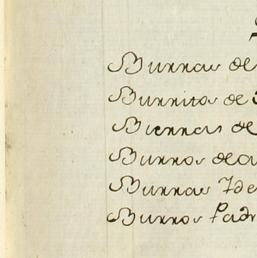 Burras de
Burritos de
de
Burros de a
Burras 7 de
Burros Padr